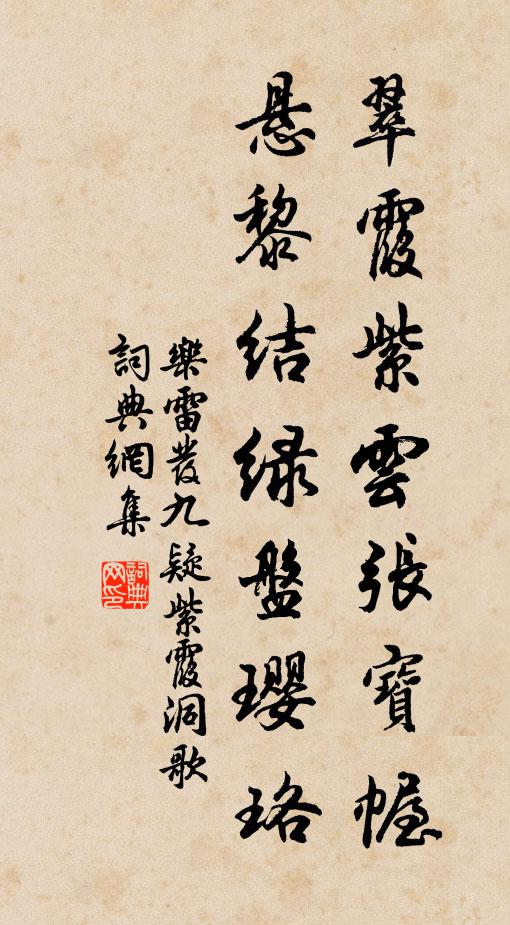 翠霞紫雲張寶幄
懸黎结緑盤璎珞
樂雷發九疑紫霞洞歌
詞典網集
詞典网印